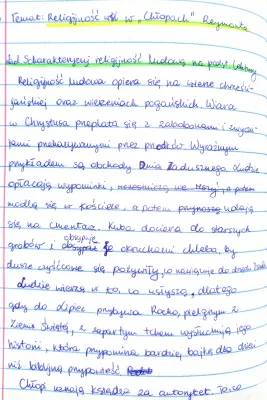 Temat: Religijność wsi w „Chłopach" Reymonta
Scharakteryzuj religijność ludową na podst.
Religijność ludowa opiera się na wierze chrześci-
jańskiej oraz wierzeniach pogańskich. Wiara
w Chrystusa przeplata się z zabobonami i zwycza-
jami przekazywanymi przez przodków. Wyraźnym
przykładem są obchody Dnia Zadusznego. Ludzie
opłacają wypominki,
modlą się w kościele, a potem udają
się na cmentarz. Kuba dociera do starszych
grobów i obsypuje je okruchami chleba, by
dusze czyśćcowe się pożywiły, co nawiązuje do
Ludzie wierzą w to, co usłyszą, dlatego
gdy do Lipiec przybywa Rocho, pielgrzym z
Ziemi Świętej, z zapartym tchem wysłuchują jego
historii, która przypomina bardziej bajkę dla dzieci
niż biblijną przypowieść
Chłopi uznają księdza za autorytet.